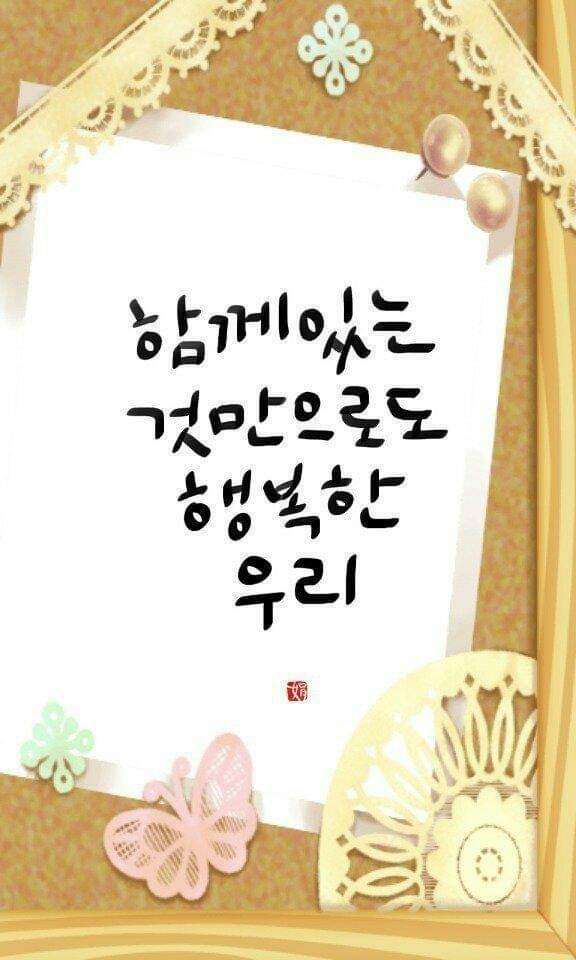 함께있는
것만으로도
행복한
우리
娟